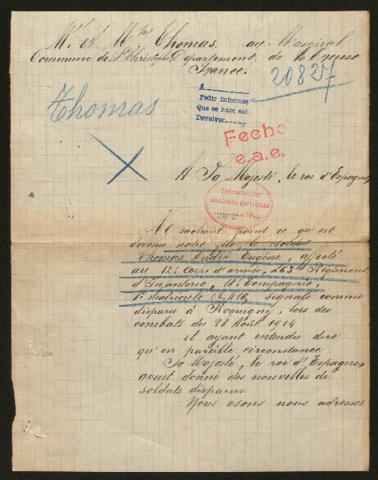 Mr et Mme Thomas, au Masgnol
Commune de St Christophe Département de la Creuse
France.
20827
A
Pedir informes
Que se hace así
Devolver
Thomas
Fecho
e.a.e.
A Sa Majesté, le roi d'Espagne,
Ne sachant point ce qui est
devenu notre fils, le soldat
Thomas André Eugène, affecté
au 12e Corps d'armée, 263e Régiment
d'Infanterie, 18e Compagnie,
No matricule signalé comme
disparu à Rocquigny, lors des
combats du 28 Août 1914
et ayant entendu dire
qu'en pareille circonstance
Sa Majesté, le roi d'Espagne,
avait donné des nouvelles de
soldats disparus.
Nous osons nous adresser